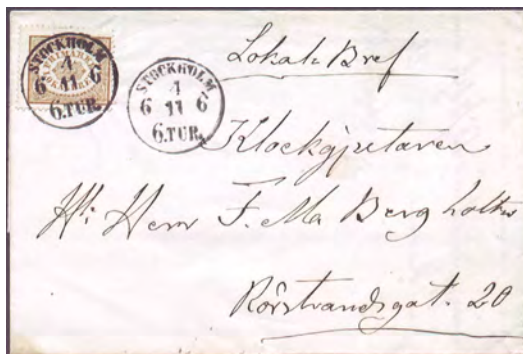 STOCKHOLM
1
6 11 6
6.TUR.
STOCKHOLM
1
6 11 6
6.TUR.
Lokal Bref
Klockgjutaren
Herr F. M. Bergholtz
Rörstrandsgat. 20